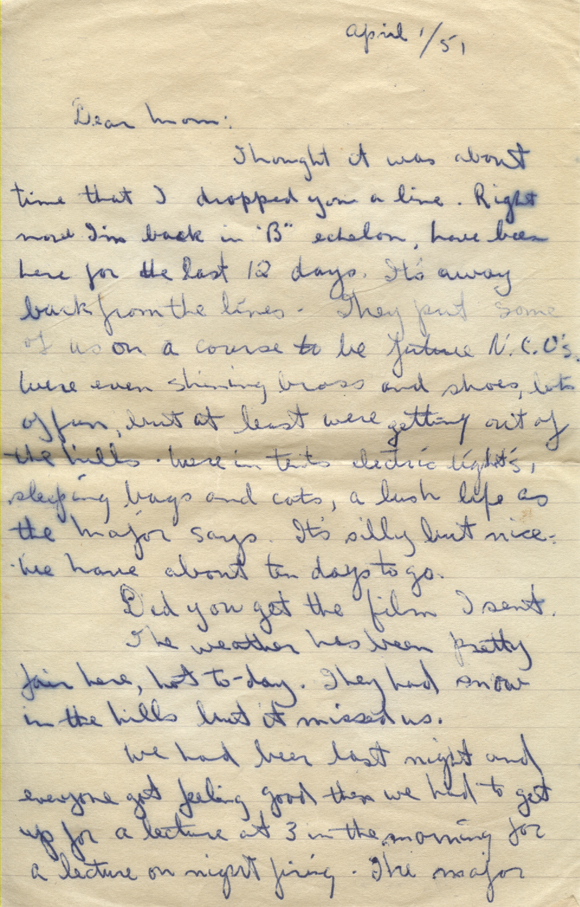 April 1/51
Dear Mom:
Thought it was about
time that I dropped you a line. Right
now I'm back in "B" echelon, have been
here for the last 12 days. It's away
back from the lines. They put some
of us on a course to be future N.C.O's.
We're even shining brass and shoes, lots
of fun, but at least we're getting out of
the hills. We're in tents electric light's,
sleeping bags and cots, a lush life as
the major says. It's silly but nice.
We have about ten days to go.
Did you get the film I sent.
The weather has been pretty
fair here, hot to-day. They had snow
in the hills but it missed us.
We had beer last night and
everyone got feeling good then we had to get
up for a lecture at 3 in the morning for
a lecture on night firing. The major